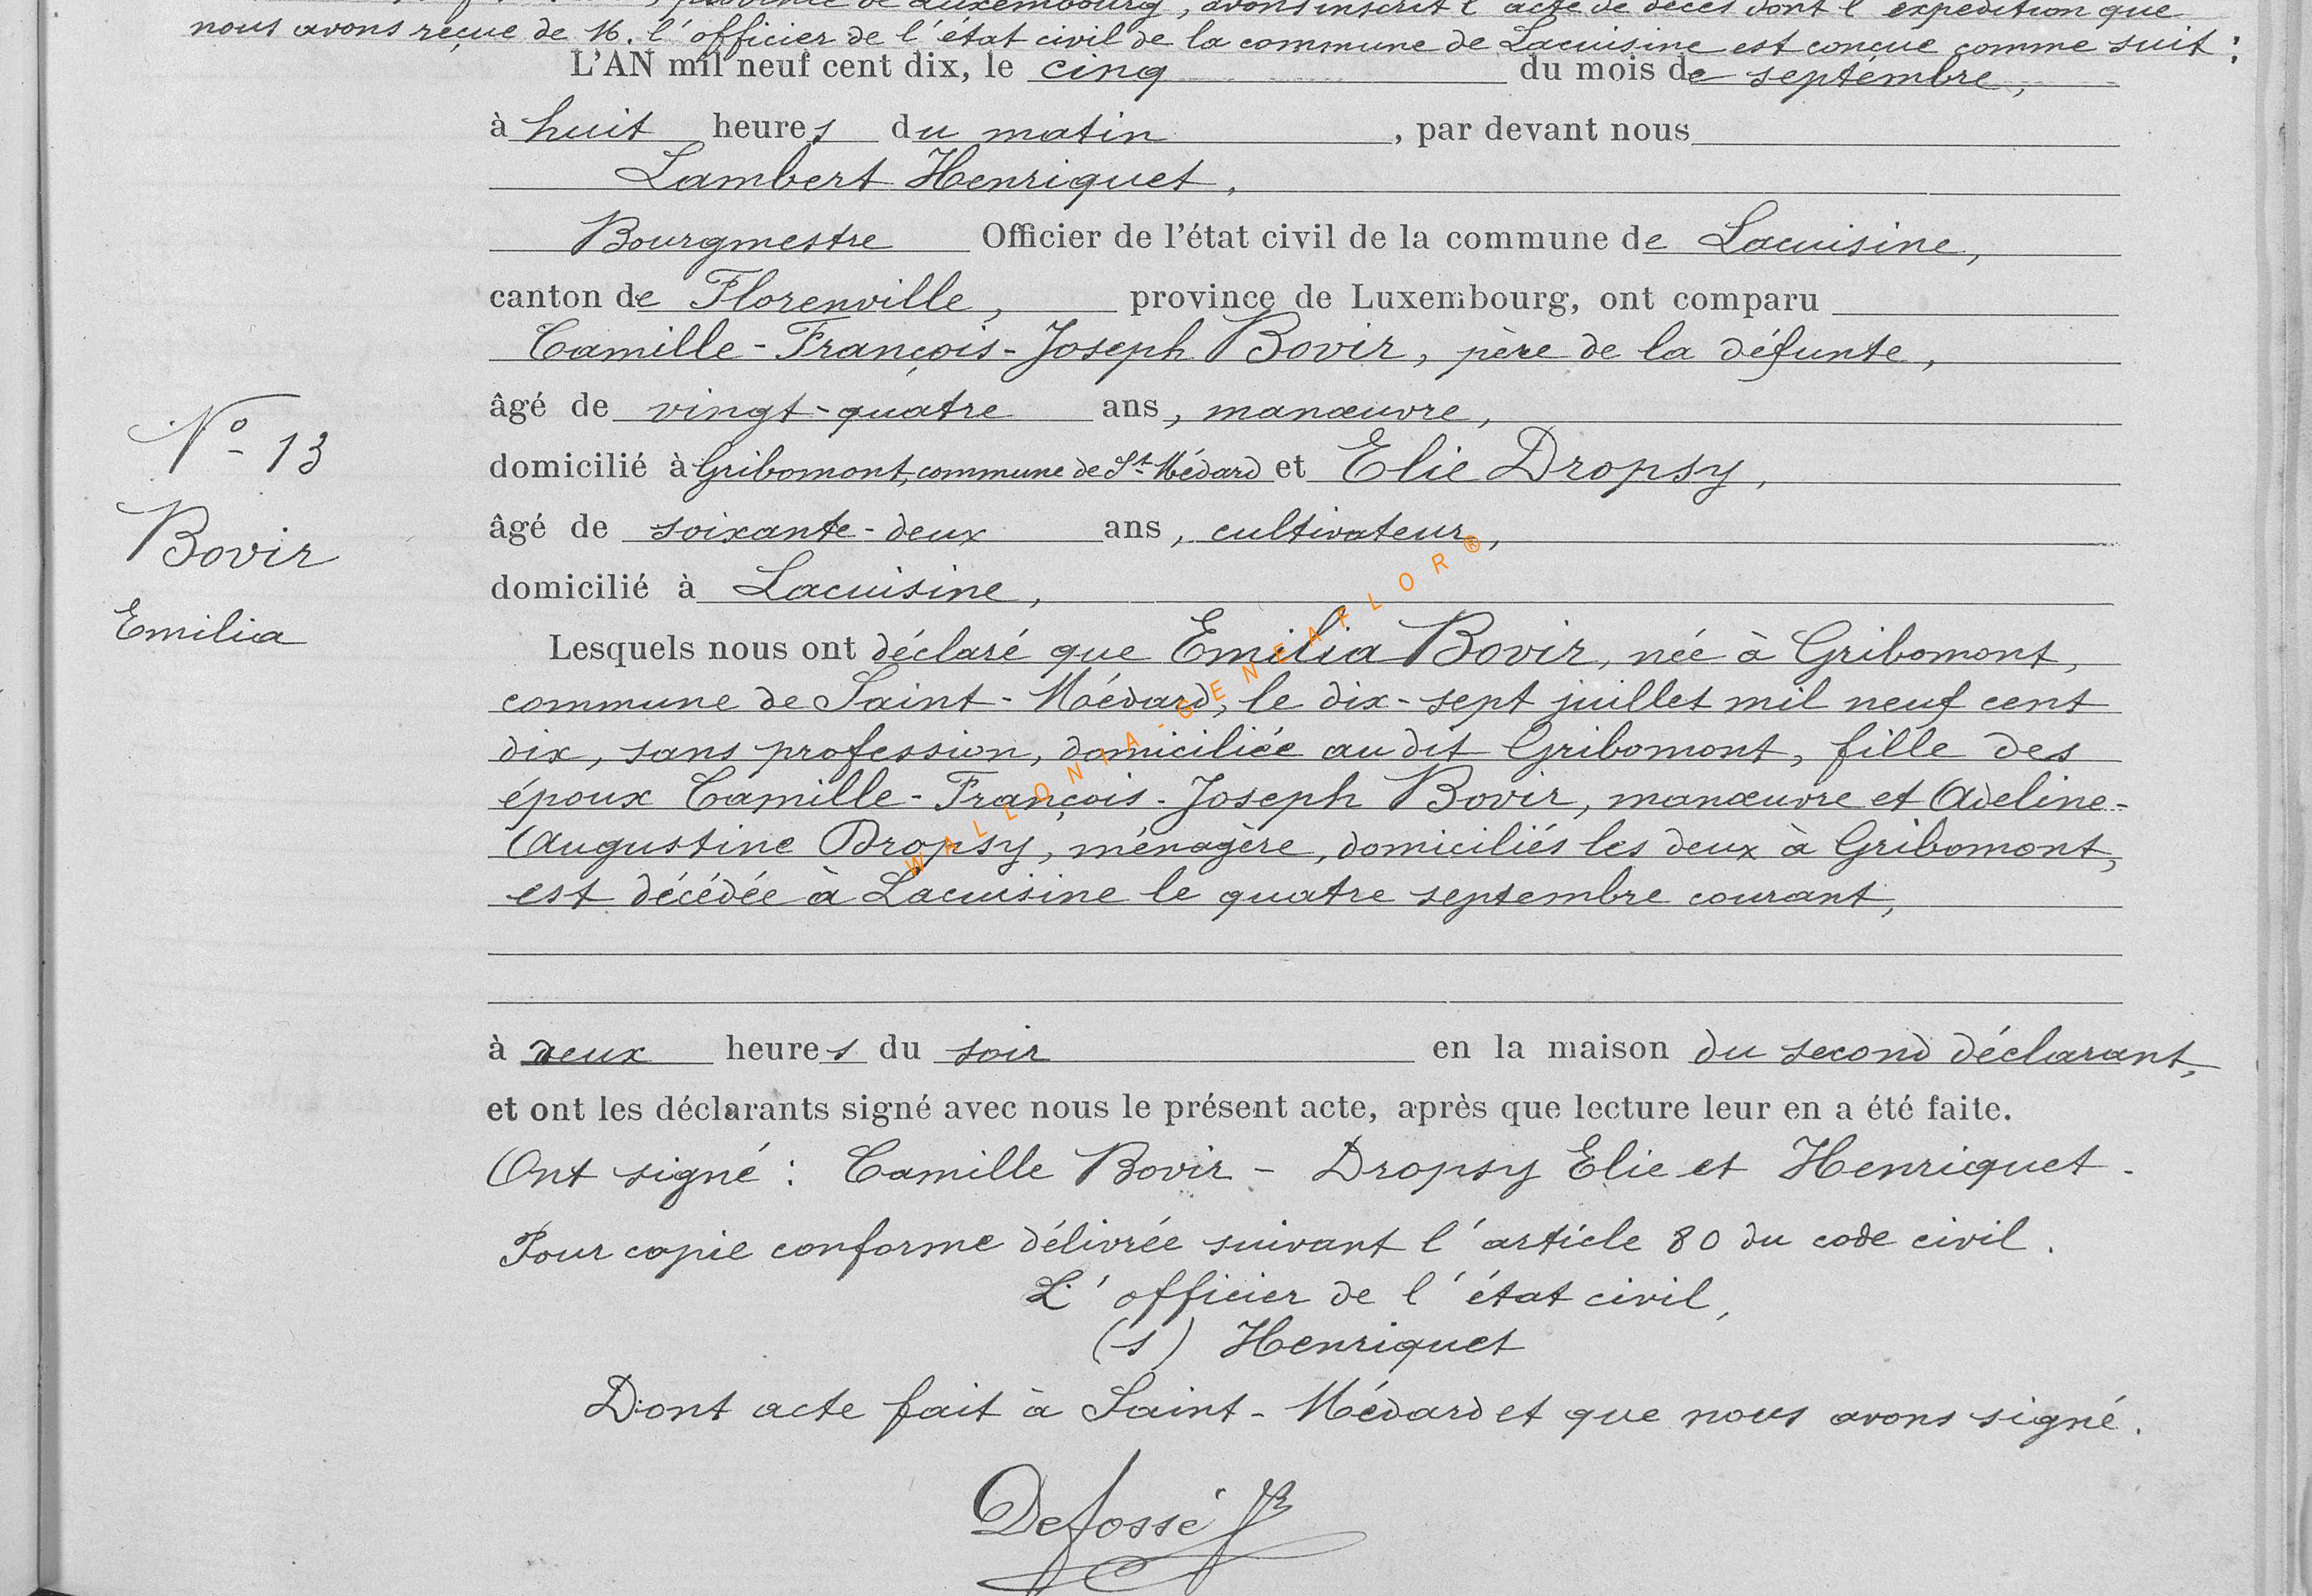 province de Luxembourg, avons inscrit l'acte de décès dont l'expédition que
nous avons reçue de M. l'officier de l'état civil de la commune de Lacuisine est conçue comme suit :
L'AN mil neuf cent dix, le cinq du mois de septembre,
à huit heures du matin, par devant nous
Lambert Henriquet,
Bourgmestre Officier de l'état civil de la commune de Lacuisine,
canton de Florenville, province de Luxembourg, ont comparu
Camille-François-Joseph Bovir, père de la défunte,
âgé de vingt-quatre ans, manœuvre,
domicilié à Gribomont, commune de St Médard et Elie Dropsy,
âgé de soixante-deux ans, cultivateur,
domicilié à Lacuisine,
Lesquels nous ont déclaré que Emilia Bovir, née à Gribomont,
commune de Saint-Médard, le dix-sept juillet mil neuf cent
dix, sans profession, domiciliée au dit Gribomont, fille des
époux Camille-François-Joseph Bovir, manœuvre et Adeline-
Augustine Dropsy, ménagère, domiciliés les deux à Gribomont,
est décédée à Lacuisine le quatre septembre courant,
à deux heures du soir en la maison du second déclarant,
et ont les déclarants signé avec nous le présent acte, après que lecture leur en a été faite.
Ont signé : Camille Bovir - Dropsy Elie et Henriquet.
Pour copie conforme délivrée suivant l'article 80 du code civil.
L'officier de l'état civil,
(s) Henriquet
Dont acte fait à Saint-Médard et que nous avons signé.
Defossé
No 13
Bovir
Emilia
WALLONIA-GENEAFLOR®